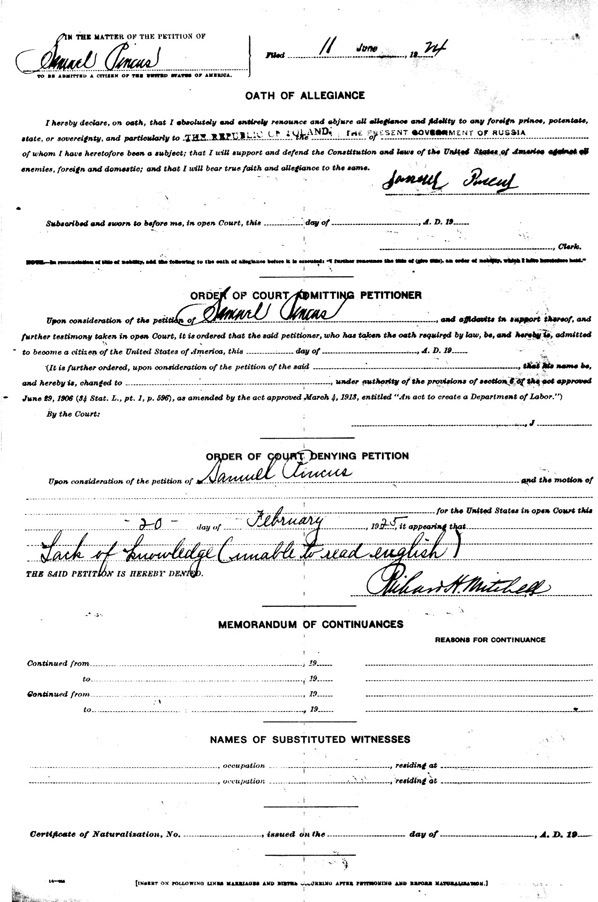 IN THE MATTER OF THE PETITION OF
Samuel Pincus
TO BE ADMITTED A CITIZEN OF THE UNITED STATES OF AMERICA.
Filed 11 June, 1924
OATH OF ALLEGIANCE
I hereby declare, on oath, that I absolutely and entirely renounce and abjure all allegiance and fidelity to any foreign prince, potentate,
state, or sovereignty, and particularly to THE REPUBLIC OF POLAND, the THE PRESENT GOVERNMENT OF RUSSIA
of whom I have heretofore been a subject; that I will support and defend the Constitution and laws of the United States of America against all
enemies, foreign and domestic; and that I will bear true faith and allegiance to the same.
Samuel Pincus
Subscribed and sworn to before me, in open Court, this day of , A. D. 19
, Clerk.
NOTE.—In renunciation of title of nobility, add the following to the oath of allegiance before it is executed: "I further renounce the title of (give title), an order of nobility, which I have heretofore held."
ORDER OF COURT ADMITTING PETITIONER
Upon consideration of the petition of Samuel Pincus , and affidavits in support thereof, and
further testimony taken in open Court, it is ordered that the said petitioner, who has taken the oath required by law, be, and hereby is, admitted
to become a citizen of the United States of America, this day of , A. D. 19
(It is further ordered, upon consideration of the petition of the said , that his name be,
and hereby is, changed to , under authority of the provisions of section 6 of the act approved
June 29, 1906 (34 Stat. L., pt. 1, p. 596), as amended by the act approved March 4, 1913, entitled "An act to create a Department of Labor.")
By the Court:
, J
ORDER OF COURT DENYING PETITION
Upon consideration of the petition of Samuel Pincus and the motion of
for the United States in open Court this
- 20 - day of February , 1925, it appearing that
Lack of knowledge (unable to read english)
THE SAID PETITION IS HEREBY DENIED.
Richard H. Mitchell
MEMORANDUM OF CONTINUANCES
REASONS FOR CONTINUANCE
Continued from , 19
to , 19
Continued from , 19
to , 19
NAMES OF SUBSTITUTED WITNESSES
, occupation , residing at
, occupation , residing at
Certificate of Naturalization, No. , issued on the day of , A. D. 19
[INSERT ON FOLLOWING LINES MARRIAGES AND BIRTHS OCCURRING AFTER PETITIONING AND BEFORE NATURALIZATION.]